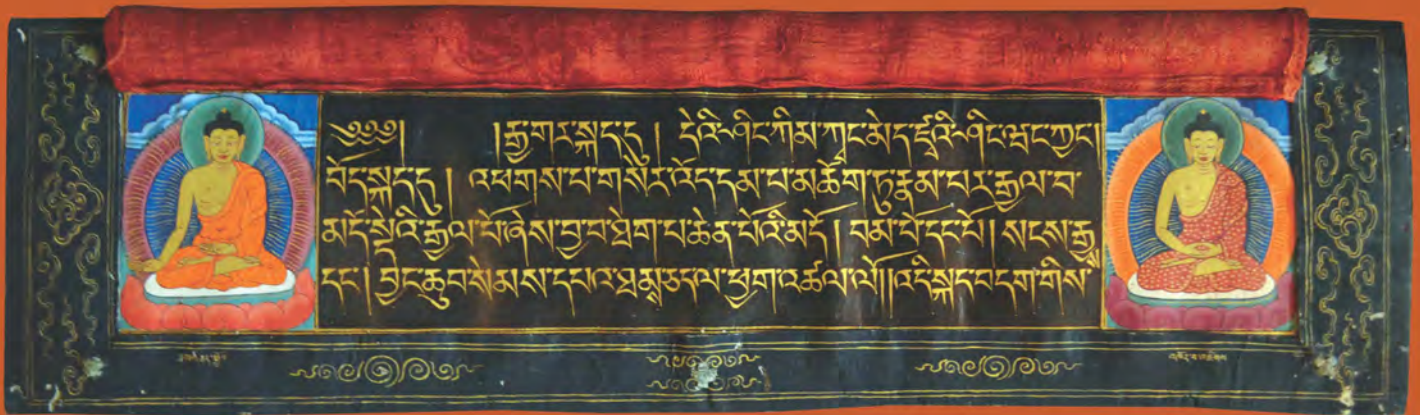 ༄༅༅། །རྒྱ་གར་སྐད་དུ། དེའི་ཤིང་ཀིམ་ཀྭང་མེད་ཛྭའི་ཤིང་ཝང་ཀྱང།
བོད་སྐད་དུ། འཕགས་པ་གསེར་འོད་དམ་པ་མཆོག་ཏུ་རྣམ་པར་རྒྱལ་བ་
མདོ་སྡེའི་རྒྱལ་པོ་ཞེས་བྱ་བ་ཐེག་པ་ཆེན་པོའི་མདོ། བམ་པོ་དང་པོ། སངས་རྒྱས་
དང། བྱང་ཆུབ་སེམས་དཔའ་ཐམས་ཅད་ལ་ཕྱག་འཚལ་ལོ།།འདི་སྐད་བདག་གིས་